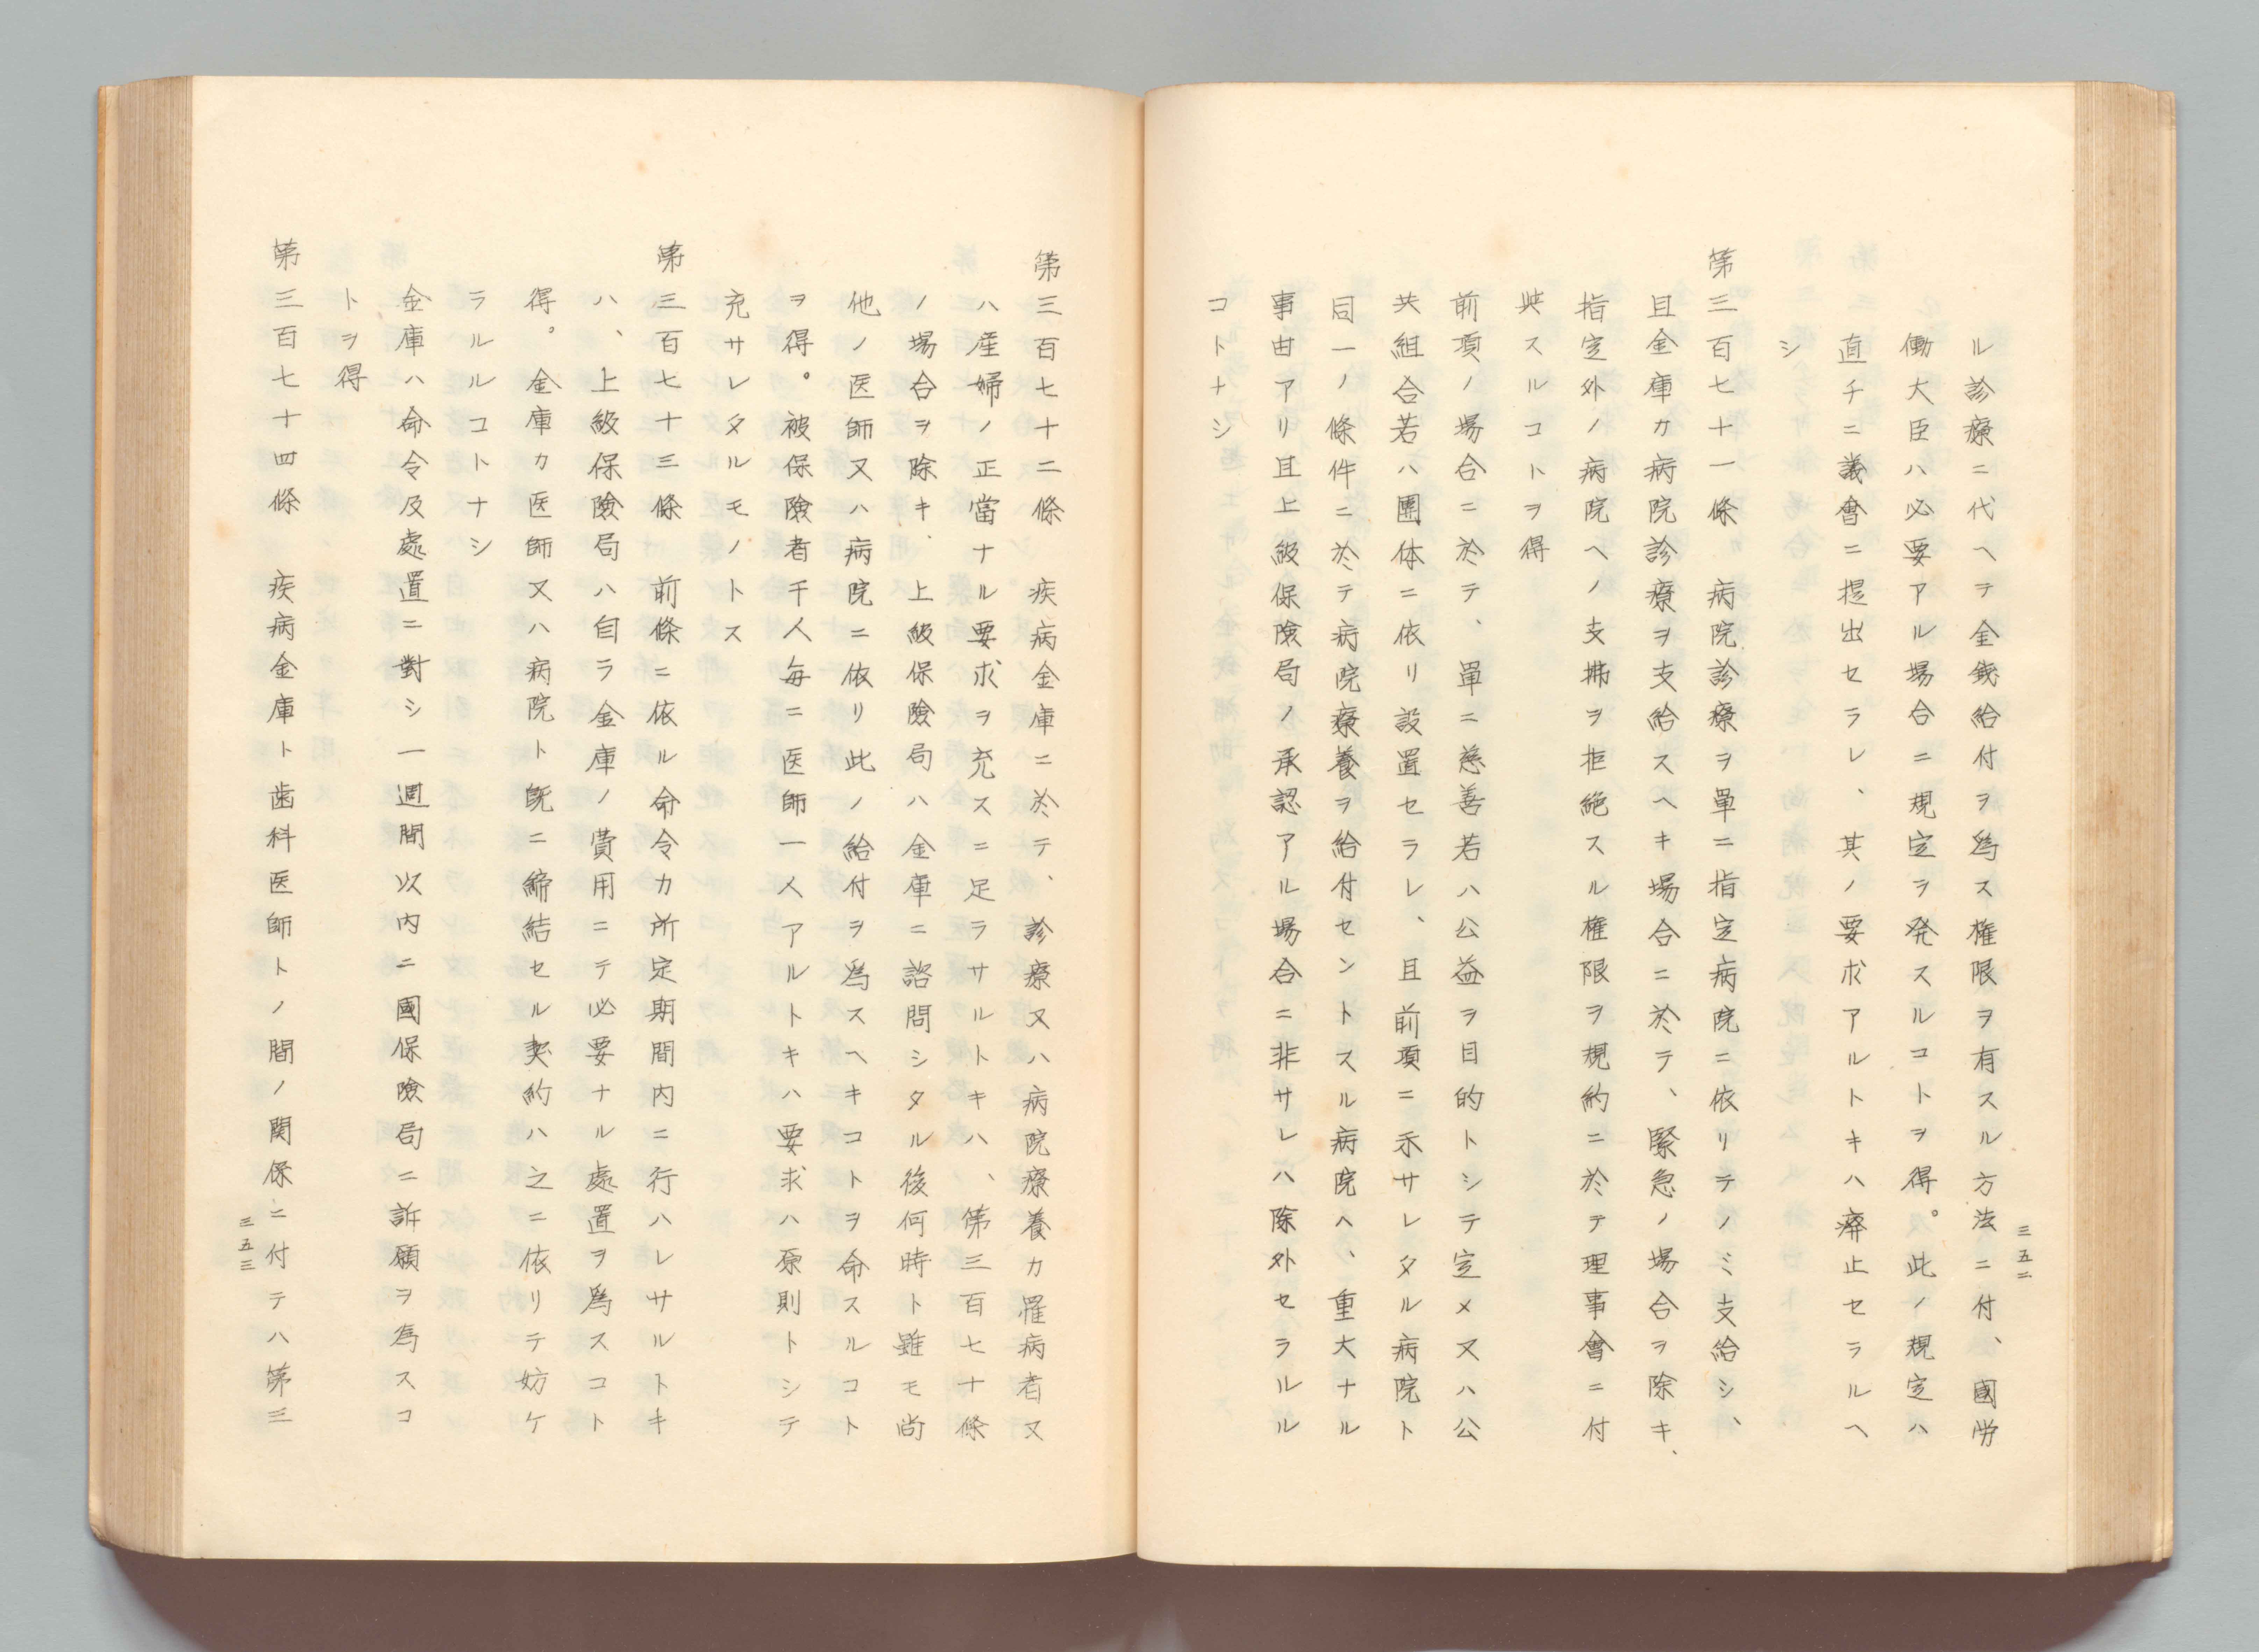 ル診療ニ代ヘテ金錢給付ヲ爲ス権限ヲ有スル方法ニ付、國労
働大臣ハ必要アル場合ニ規定ヲ発スルコトヲ得。此ノ規定ハ
直チニ議會ニ提出セラレ、其ノ要求アルトキハ癈止セラルヘ
シ
第三百七十一條　病院診療ヲ單ニ指定病院ニ依リテノミ支給シ、
且金庫カ病院診療ヲ支給スヘキ場合ニ於テ、緊急ノ場合ヲ除キ、
指定外ノ病院ヘノ支拂ヲ拒絶スル権限ヲ規約ニ於テ理事會ニ付
與スルコトヲ得
前項ノ場合ニ於テ、單ニ慈善若ハ公益ヲ目的トシテ定メ又ハ公
共組合若ハ團体ニ依リ設置セラレ、且前項ニ示サレタル病院ト
同一ノ條件ニ於テ病院療養ヲ給付セントスル病院ヘ、重大ナル
事由アリ且上級保險局ノ承認アル場合ニ非サレハ除外セラルル
コトナシ
三五二
第三百七十二條　疾病金庫ニ於テ、診療又ハ病院療養カ罹病者又
ハ産婦ノ正當ナル要求ヲ充スニ足ラサルトキハ、第三百七十條
ノ場合ヲ除キ、上級保險局ハ金庫ニ諮問シタル後何時ト雖モ尚
他ノ医師又ハ病院ニ依リ此ノ給付ヲ爲スヘキコトヲ命スルコト
ヲ得。被保險者千人毎ニ医師一人アルトキハ要求ハ原則トシテ
充サレタルモノトス
第三百七十三條　前條ニ依ル命令カ所定期間内ニ行ハレサルトキ
ハ、上級保險局ハ自ラ金庫ノ費用ニテ必要ナル處置ヲ爲スコト
得。金庫カ医師又ハ病院ト既ニ締結セル契約ハ之ニ依リテ妨ケ
ラルルコトナシ
金庫ハ命令及處置ニ對シ一週間以内ニ國保險局ニ訴願ヲ為スコ
トヲ得
第三百七十四條　疾病金庫ト歯科医師トノ間ノ関係ニ付テハ第三
三五三